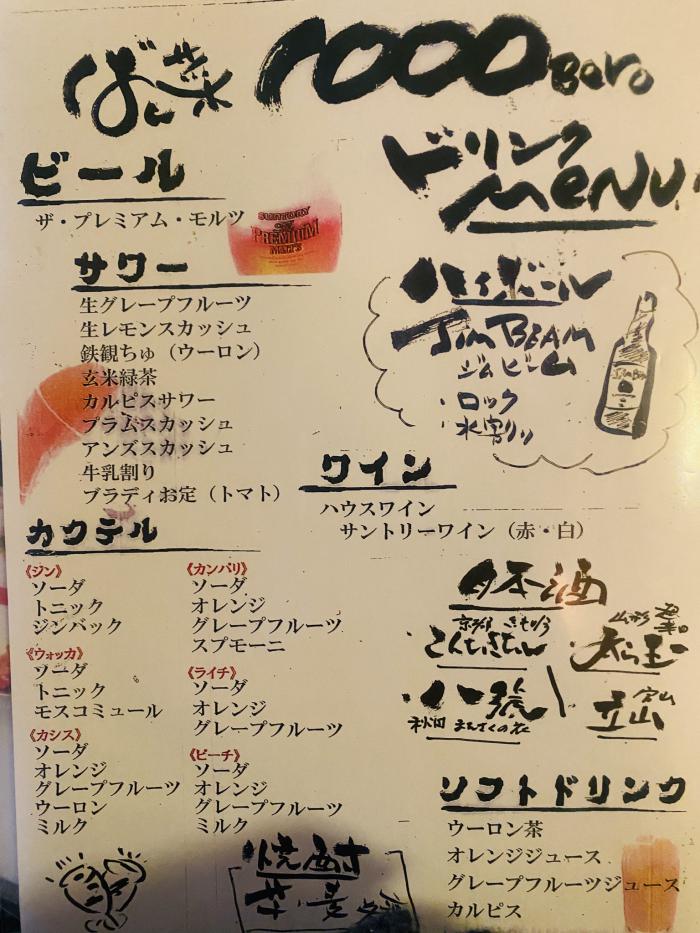 ばん菜 1000 Bero
ドリンク
MENU
ビール
ザ・プレミアム・モルツ
SUNTORY
THE
PREMIUM
MALT'S
サワー
生グレープフルーツ
生レモンスカッシュ
鉄観ちゅ（ウーロン）
玄米緑茶
カルピスサワー
プラムスカッシュ
アンズスカッシュ
牛乳割り
ブラディお定（トマト）
ハイボール
JIM BEAM
ジムビーム
・ロック
・水割り
ワイン
ハウスワイン
サントリーワイン（赤・白）
カクテル
《ジン》
ソーダ
トニック
ジンバック
《ウォッカ》
ソーダ
トニック
モスコミュール
《カシス》
ソーダ
オレンジ
グレープフルーツ
ウーロン
ミルク
《カンパリ》
ソーダ
オレンジ
グレープフルーツ
スプモーニ
《ライチ》
ソーダ
オレンジ
グレープフルーツ
《ピーチ》
ソーダ
オレンジ
グレープフルーツ
ミルク
日本酒
京都
こんちきちん
山形
八張
秋田 まんさくの花
富山
立山
ソフトドリンク
ウーロン茶
オレンジジュース
グレープフルーツジュース
カルピス
焼酎
芋・麦